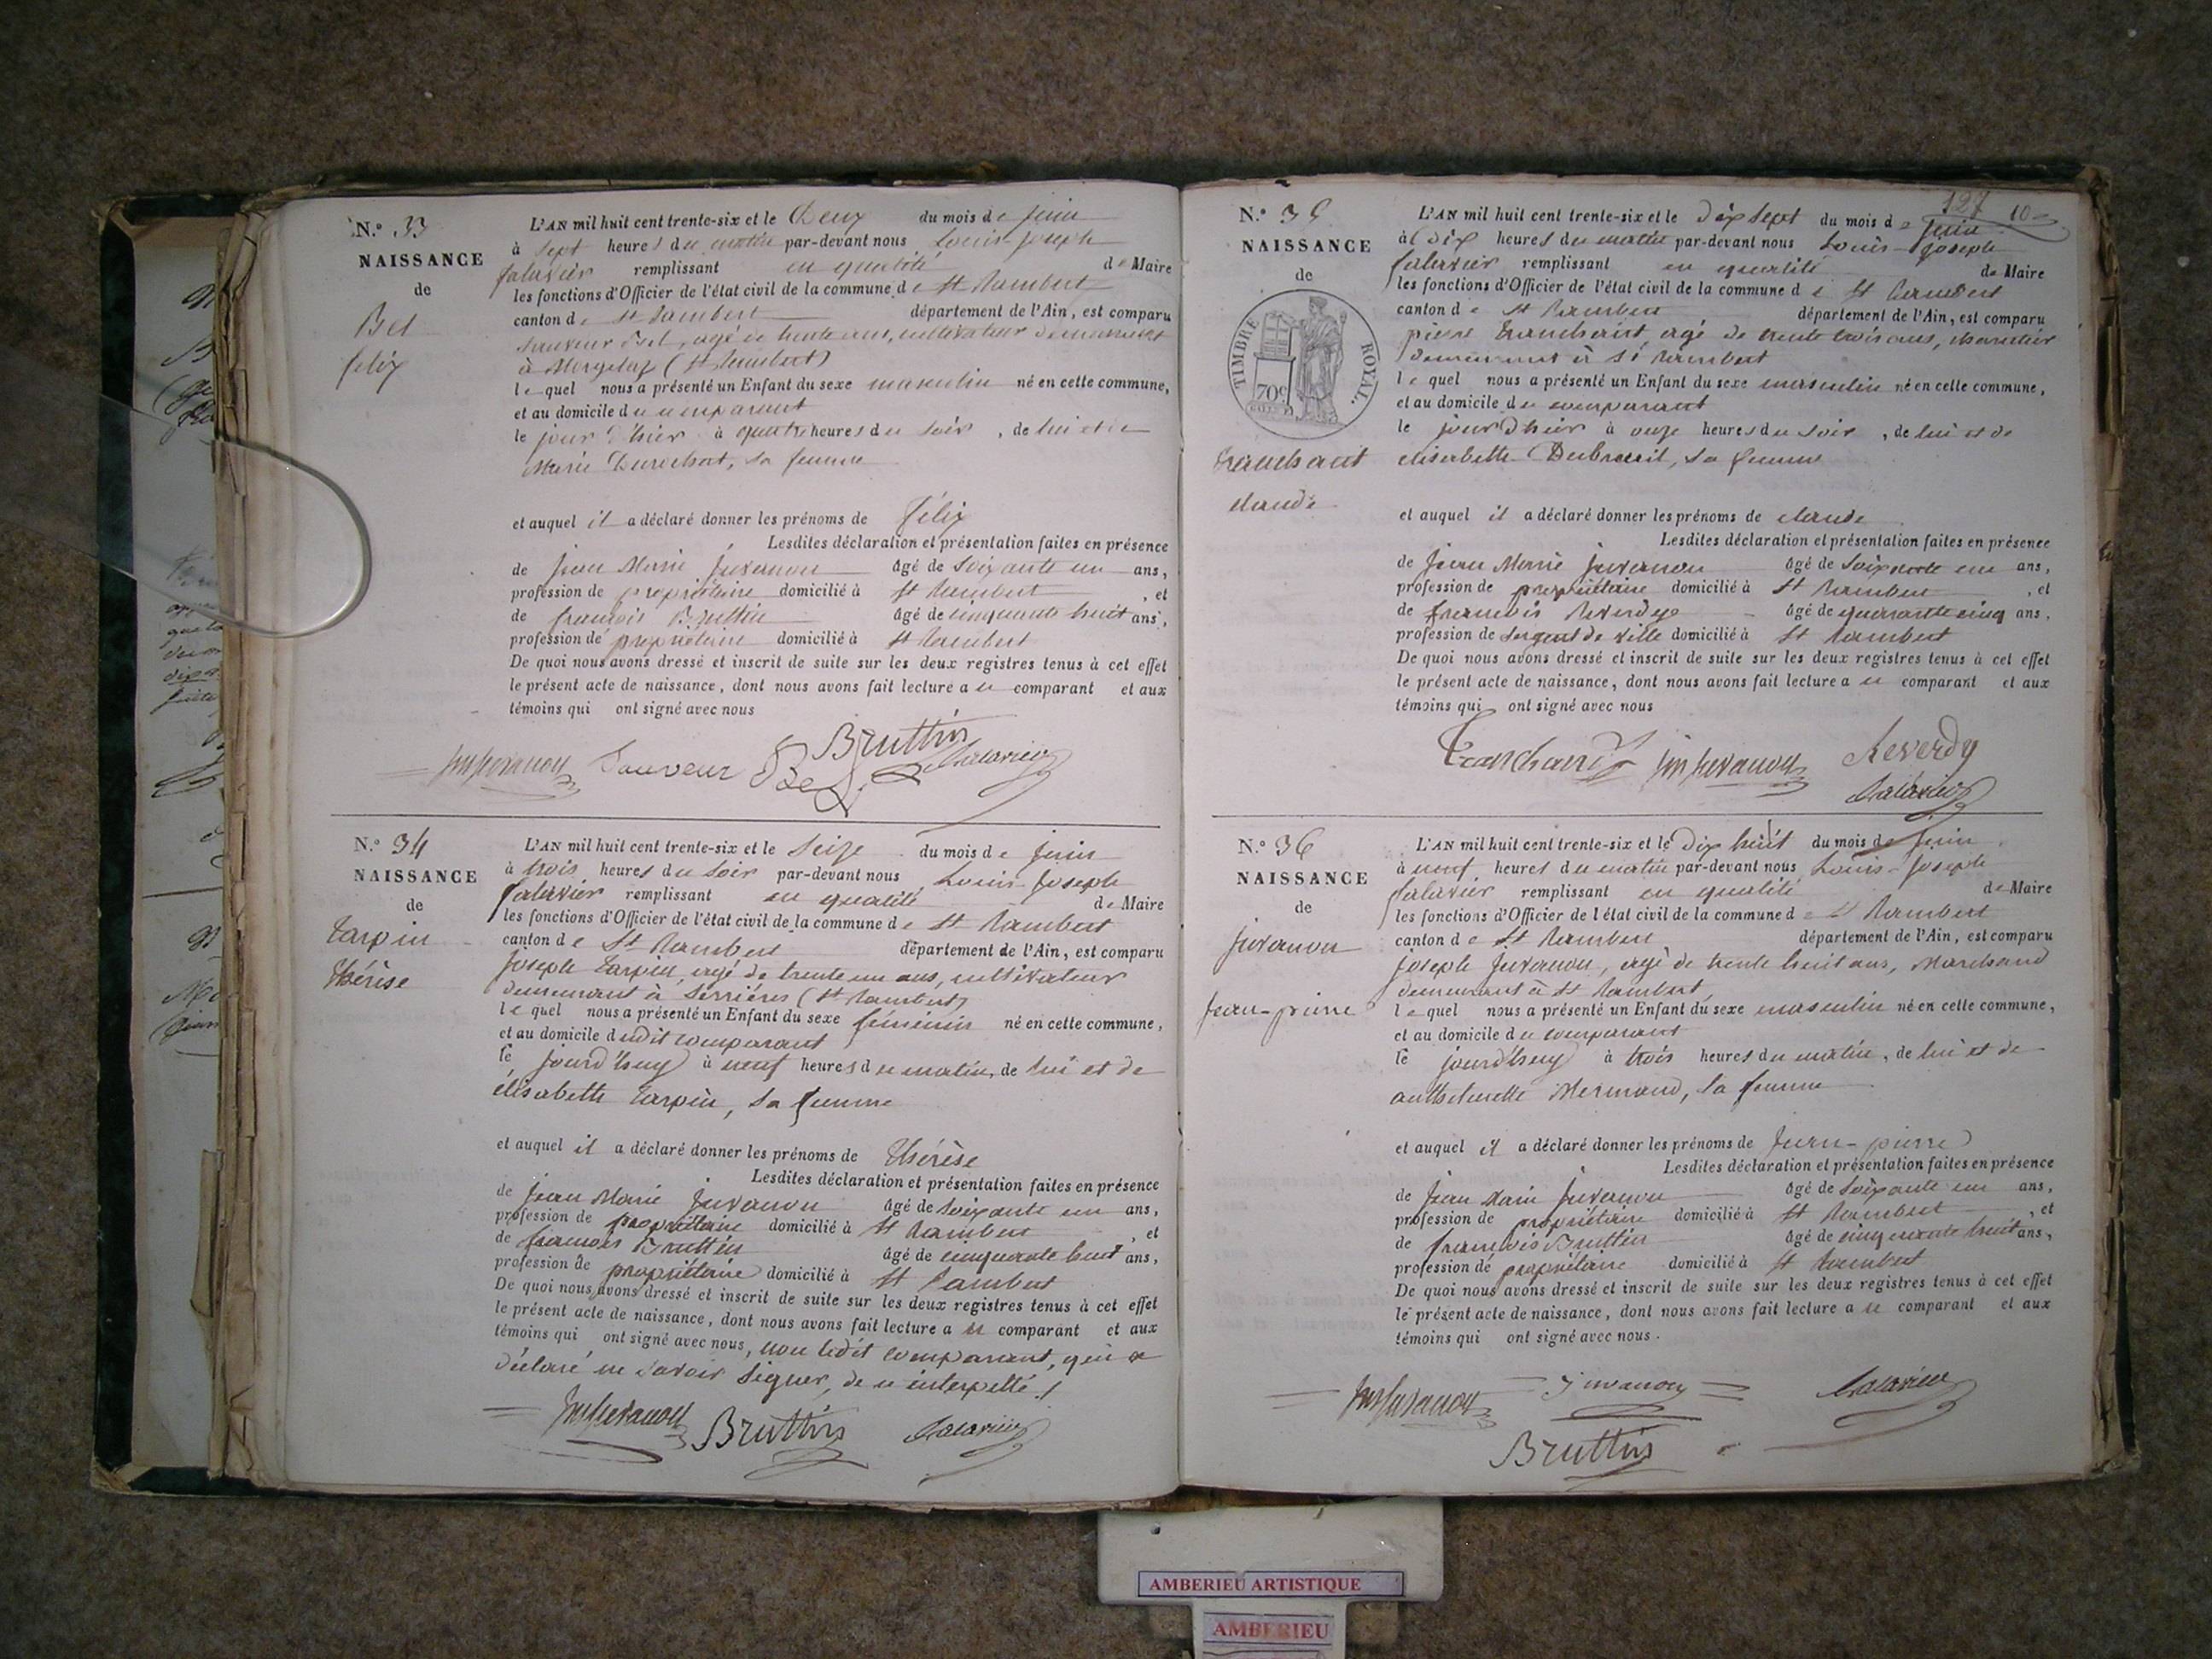 N.º 33
NAISSANCE
de
Bel
felix
L'AN mil huit cent trente-six et le Deux du mois de juin
à sept heures du matin par-devant nous Louis-Joseph
Salavier remplissant en qualité de Maire
les fonctions d'Officier de l'état civil de la commune de St Rambert
canton de St Rambert département de l'Ain, est comparu
Sauveur Bel, agé de trente ans, cultivateur demeurant
à (St Rambert)
lequel nous a présenté un Enfant du sexe masculin né en cette commune,
et au domicile du comparant
le jour d'hier à quatre heures du soir, de lui et de
Marie, sa femme
et auquel il a déclaré donner les prénoms de Félix
Lesdites déclaration et présentation faites en présence
de Jean Marie Juvanon âgé de soixante un ans,
profession de propriétaire domicilié à St Rambert, et
de françois Bruttin âgé de cinquante huit ans,
profession de propriétaire domicilié à St Rambert
De quoi nous avons dressé et inscrit de suite sur les deux registres tenus à cet effet
le présent acte de naissance, dont nous avons fait lecture a ce comparant et aux
témoins qui ont signé avec nous
jm juvanon Sauveur Bel Bruttin Salavier
N.º 34
NAISSANCE
de
Tarpin
thérèse
L'AN mil huit cent trente-six et le seize du mois de juin
à trois heures du soir par-devant nous Louis-Joseph
Salavier remplissant en qualité de Maire
les fonctions d'Officier de l'état civil de la commune de St Rambert
canton de St Rambert département de l'Ain, est comparu
Joseph Tarpin, agé de trente un ans, cultivateur
demeurant à Serrières (St Rambert)
lequel nous a présenté un Enfant du sexe féminin né en cette commune,
et au domicile dudit comparant
le jourd'huy à neuf heures du matin, de lui et de
élisabette Tarpin, sa femme
et auquel il a déclaré donner les prénoms de thérèse
Lesdites déclaration et présentation faites en présence
de Jean Marie Juvanon âgé de soixante un ans,
profession de propriétaire domicilié à St Rambert, et
de francois Bruttin âgé de cinquante huit ans,
profession de propriétaire domicilié à St Rambert
De quoi nous avons dressé et inscrit de suite sur les deux registres tenus à cet effet
le présent acte de naissance, dont nous avons fait lecture a ce comparant et aux
témoins qui ont signé avec nous, non ledit comparant, qui a
déclaré ne savoir signer, de ce interpellé./
jm juvanon Bruttin Salavier
127 10
N.º 35
NAISSANCE
de
TIMBRE ROYAL.
70c
tranchant
claude
L'AN mil huit cent trente-six et le dix sept du mois de juin
à dix heures du matin par-devant nous Louis-Joseph
Salavier remplissant en qualité de Maire
les fonctions d'Officier de l'état civil de la commune de St Rambert
canton de St Rambert département de l'Ain, est comparu
pierre tranchant, agé de trente trois ans, charretier
demeurant à St Rambert
lequel nous a présenté un Enfant du sexe masculin né en cette commune,
et au domicile du comparant
le jour d'hier à onze heures du soir, de lui et de
elisabette Dubreuil, sa femme
et auquel il a déclaré donner les prénoms de claude
Lesdites déclaration et présentation faites en présence
de Jean Marie juvanon âgé de soixante un ans,
profession de propriétaire domicilié à St Rambert, et
de francois Reverdy âgé de quarante cinq ans,
profession de sergent de ville domicilié à St Rambert
De quoi nous avons dressé et inscrit de suite sur les deux registres tenus à cet effet
le présent acte de naissance, dont nous avons fait lecture a ce comparant et aux
témoins qui ont signé avec nous
Tranchand jm juvanon Reverdy
Salavier
N.º 36
NAISSANCE
de
juvanon
jean-pierre
L'AN mil huit cent trente-six et le Dix huit du mois de juin
à neuf heures du matin par-devant nous Louis-Joseph
Salavier remplissant en qualité de Maire
les fonctions d'Officier de l'état civil de la commune de St Rambert
canton de St Rambert département de l'Ain, est comparu
joseph juvanon, agé de trente huit ans, Marchand
demeurant à St Rambert
lequel nous a présenté un Enfant du sexe masculin né en cette commune,
et au domicile du comparant
le jourd'huy à trois heures du matin, de lui et de
Mermand, sa femme
et auquel il a déclaré donner les prénoms de jean-pierre
Lesdites déclaration et présentation faites en présence
de Jean Marie juvanon âgé de soixante un ans,
profession de propriétaire domicilié à St Rambert, et
de francois Bruttin âgé de cinquante huit ans,
profession de propriétaire domicilié à St Rambert
De quoi nous avons dressé et inscrit de suite sur les deux registres tenus à cet effet
le présent acte de naissance, dont nous avons fait lecture a ce comparant et aux
témoins qui ont signé avec nous.
jm juvanon juvanon Salavier
Bruttin
AMBERIEU ARTISTIQUE
AMBERIEU